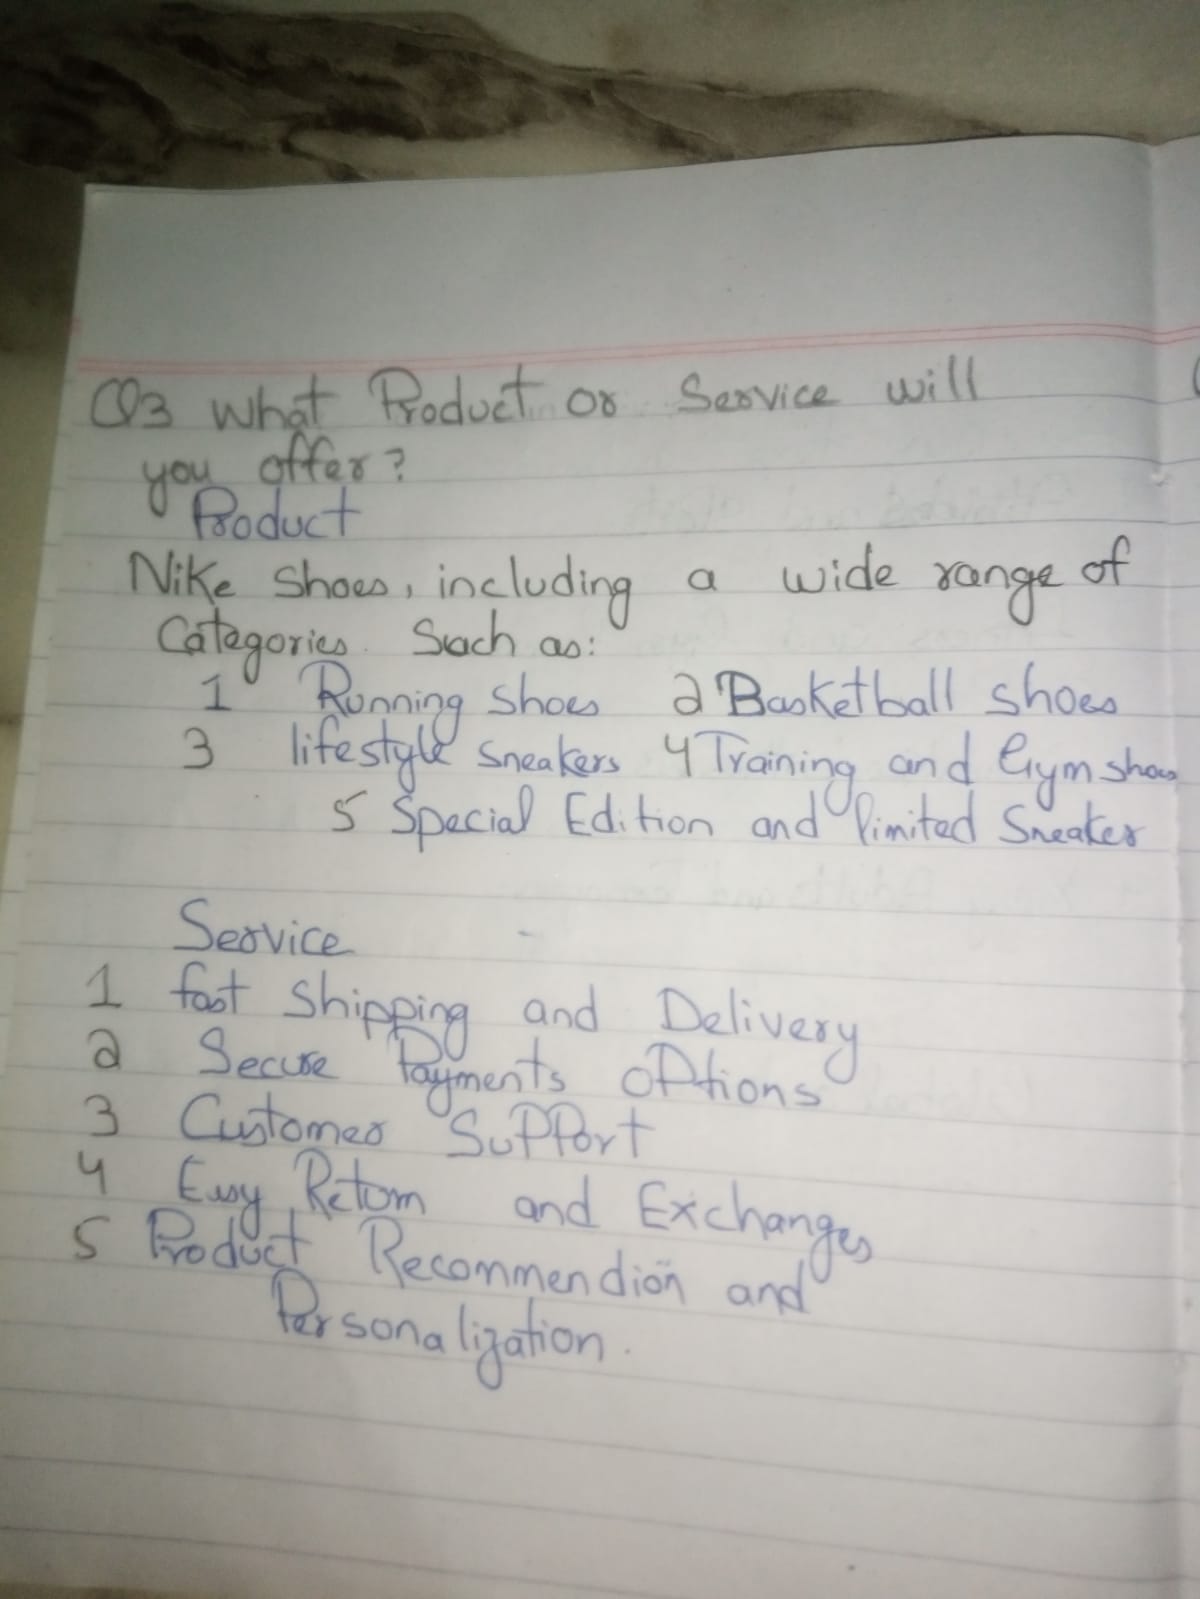 Q3 What Product or Service will
you offer?
Product
Nike Shoes, including a wide range of
Categories. Such as:
1 Running shoes 2 Basketball shoes
3 lifestyle sneakers 4 Training and Gym shoes
5 Special Edition and limited Sneaker
Service
1 fast Shipping and Delivery
2 Secure Payments options
3 Customer Support
4 Easy Return and Exchanges
5 Product Recommendion and
Personalization.